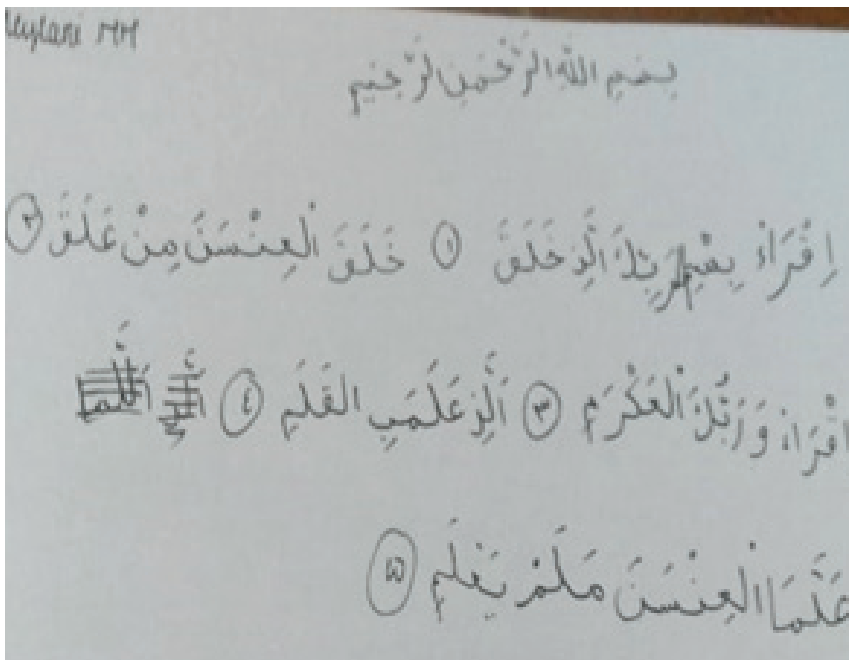 بِسْمِ اللّٰهِ الرَّحْمٰنِ الرَّحِيْمِ
اِقْرَاءْ بِسْمِ رَبِّكَ الَّذِ خَلَقَ ١ خَلَقَ الْعِنْسَنَ مِنْ عَلَقَ ٢
اقْرَاءْ وَرَبُّكَ الْعَكْرَمِ ٣ اَلَّذِ عَلَمَبِ القَلَمِ ٤
عَلَّمَا الْعِنْسَنَ مَلَمْ يَعْلَمِ ٥